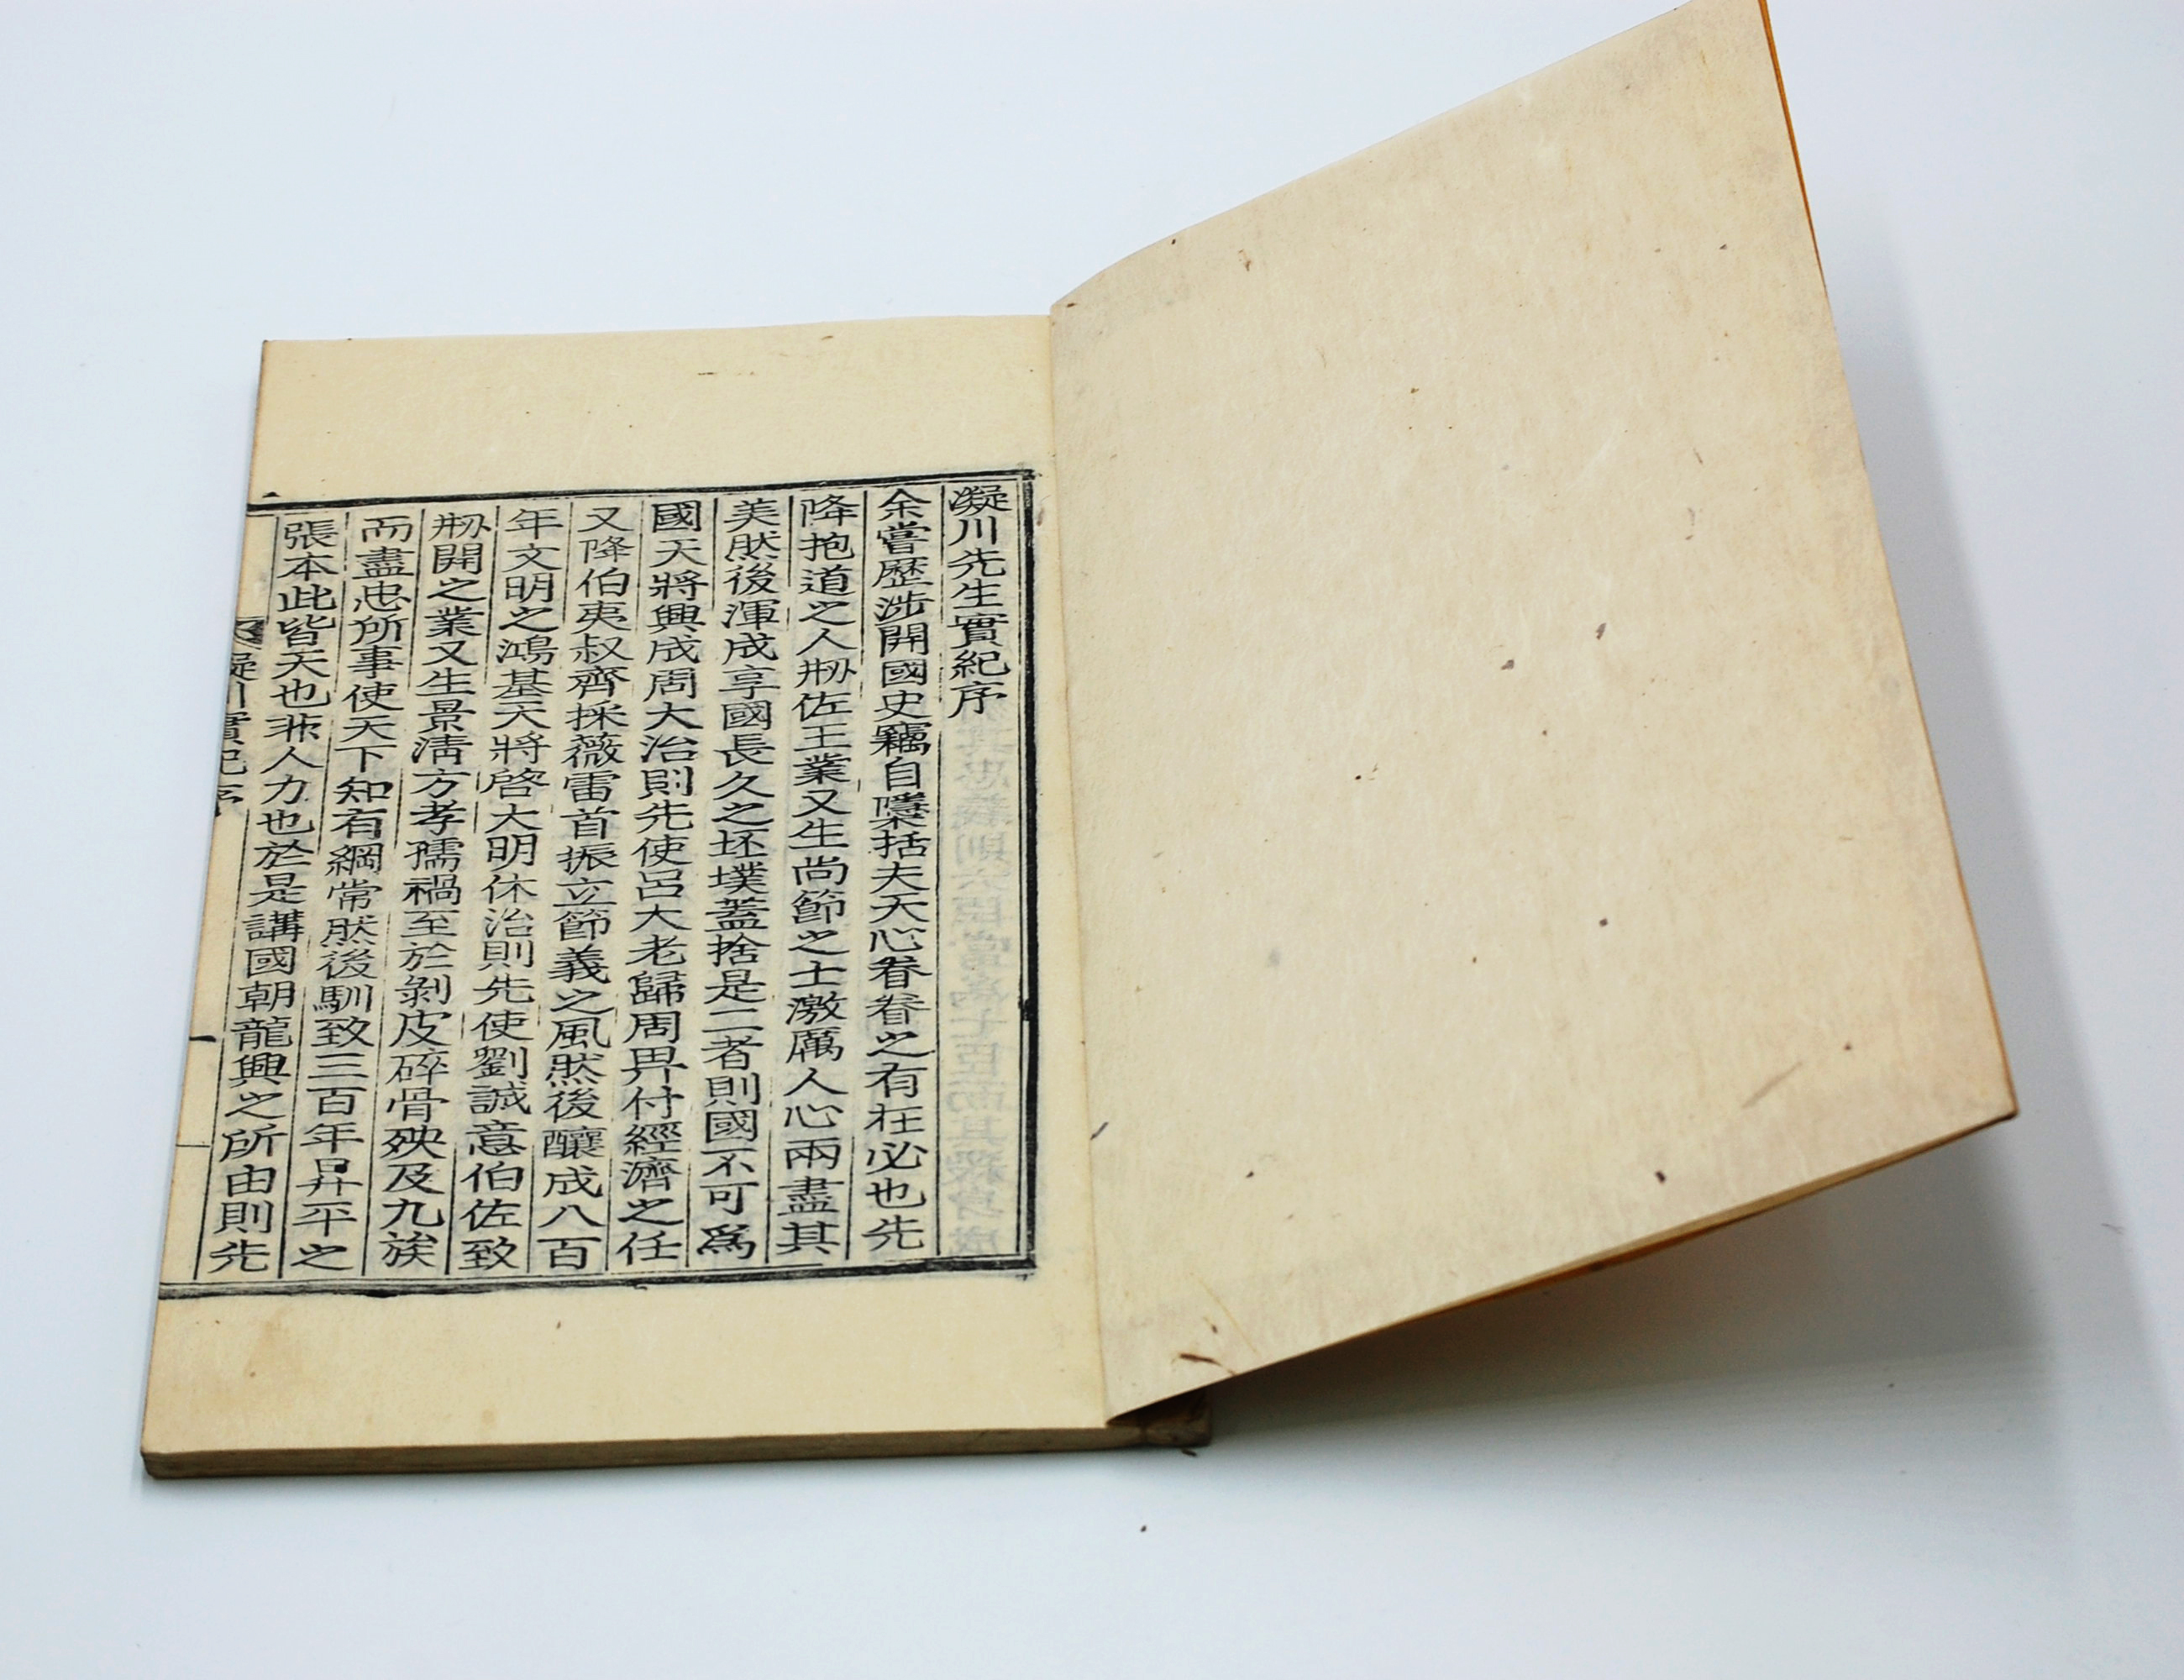 凝川先生實紀序
余嘗歷涉開國史竊自隱括夫天心眷眷之有在必也先
降抱道之人刱佐王業又生尚節之士激厲人心兩盡其
美然後渾成享國長久之坯墣蓋捨是二者則國不可爲
國天將興成周大治則先使呂大老歸周畀付經濟之任
又降伯夷叔齊採薇雷首振立節義之風然後釀成八百
年文明之鴻基天將啓大明休治則先使劉誠意伯佐致
刱開之業又生景淸方孝孺禍至於剝皮碎骨殃及九族
而盡忠所事使天下知有綱常然後馴致三百年昇平之
張本此皆天也非人力也於是講國朝龍興之所由則先
凝川實紀序